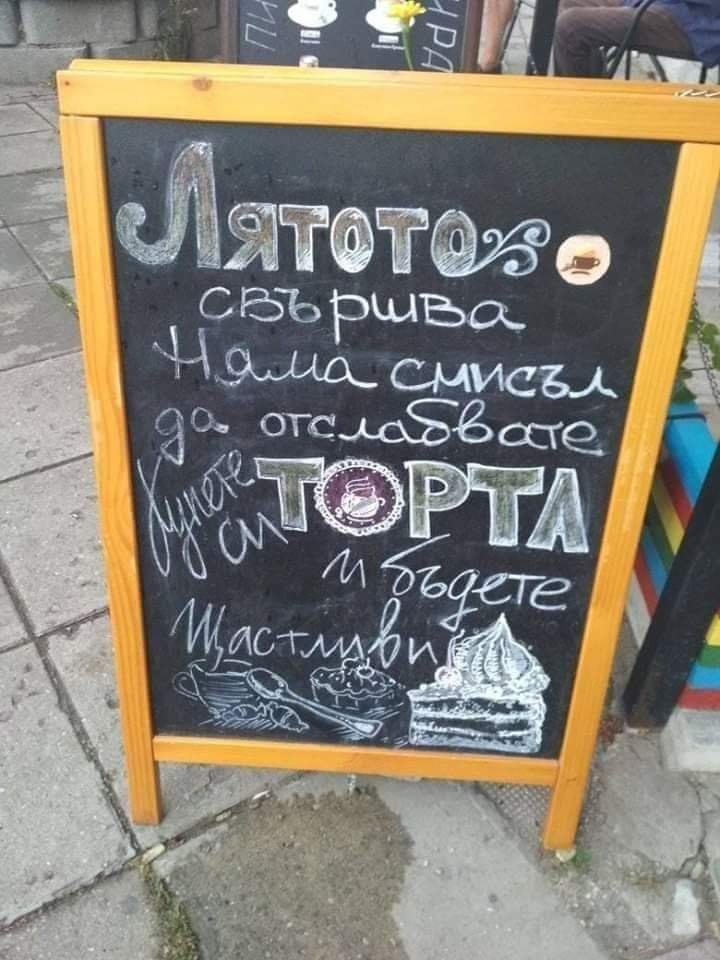 ЛЯТОТО
свършва
Няма смисъл
да отслабвате
Купете
си ТОРТА
и бъдете
Щастливи